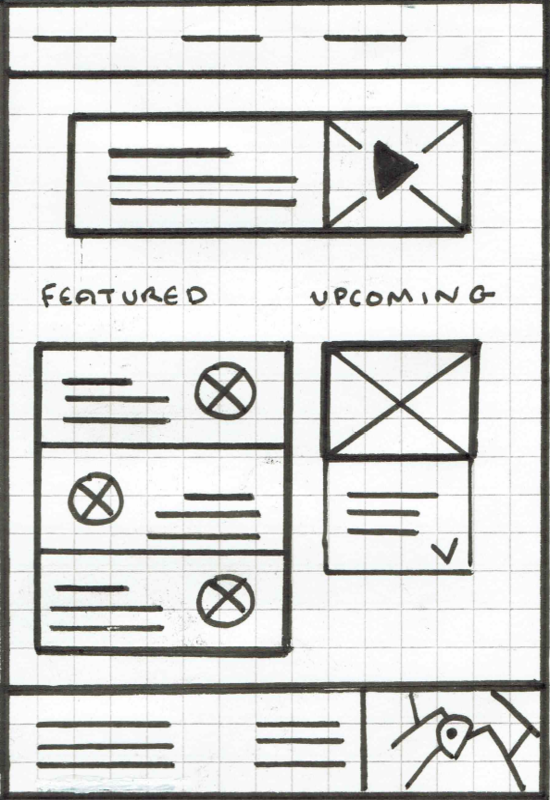 FEATURED
UPCOMING